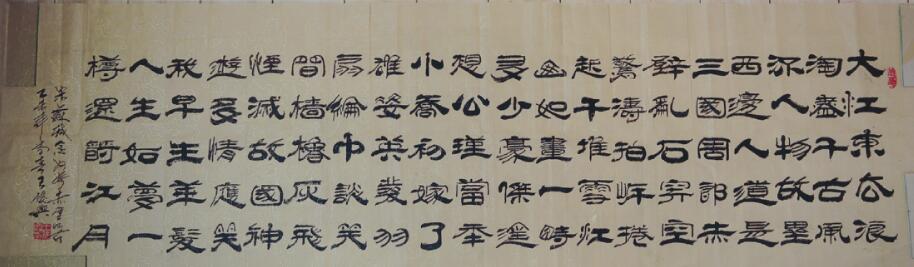 大江東去浪
淘盡千古風
流人物故壘
西邊人道是
三國周郎赤
壁亂石穿空
驚濤拍岸捲
起千堆雪江
山如畫一時
多少豪傑遙
想公瑾當年
小喬初嫁了
雄姿英發羽
扇綸巾談笑
間檣櫓灰飛
煙滅故國神
遊多情應笑
我早生華髮
人生如夢一
樽還酹江月
宋蘇軾念奴嬌赤壁